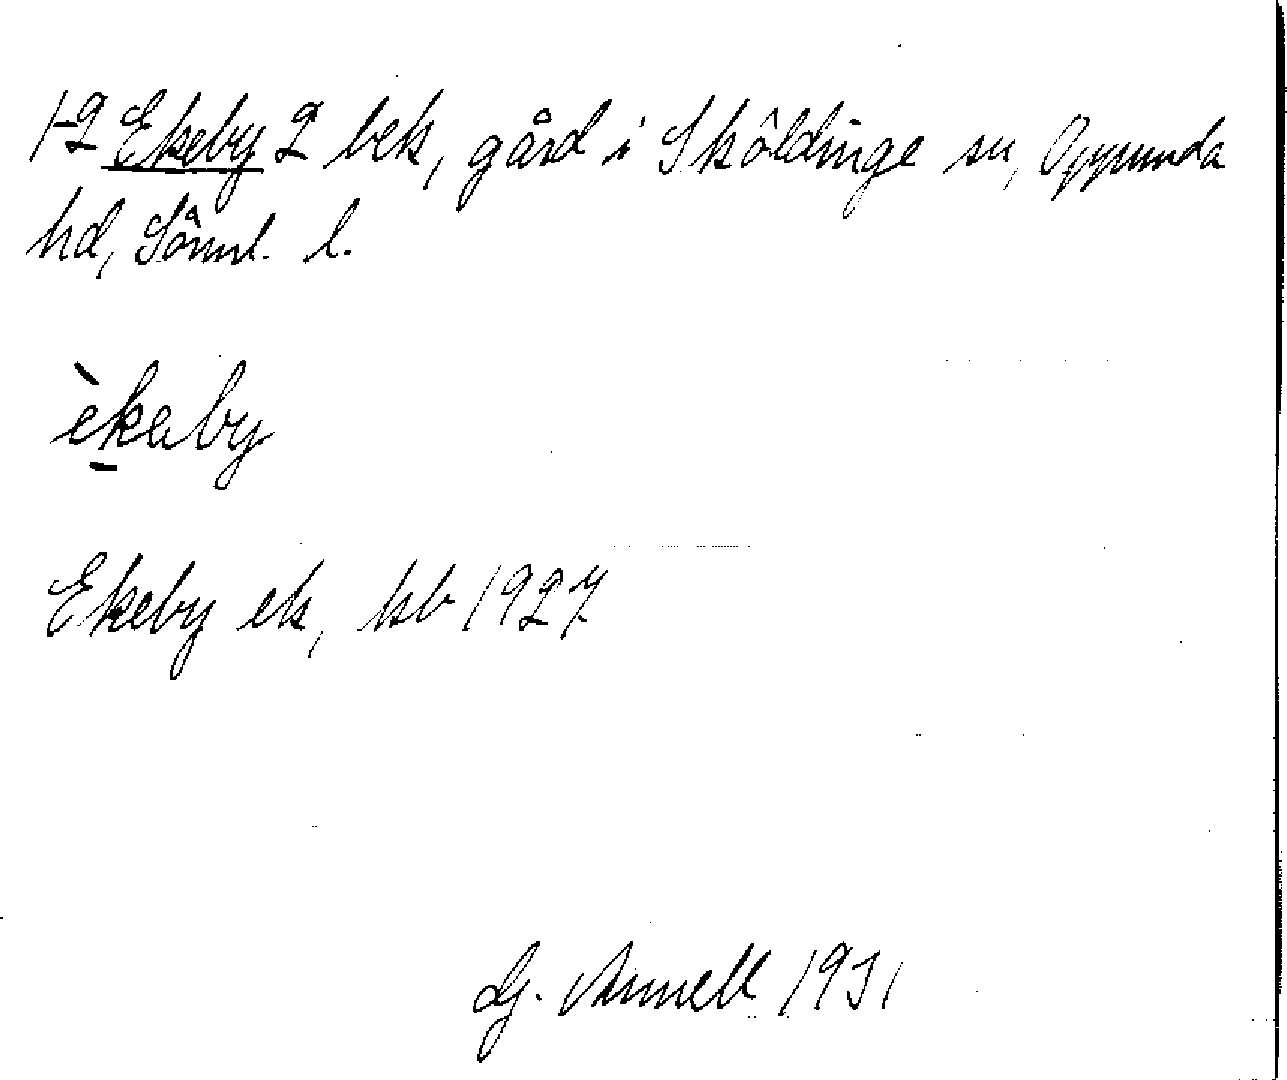 1-2 Ekeby 2 bek, gård i Sköldinge sn, Oppunda
hd, Söml. l.
èkeby
Ekeby ek, kb 1927
G. Annell 1931